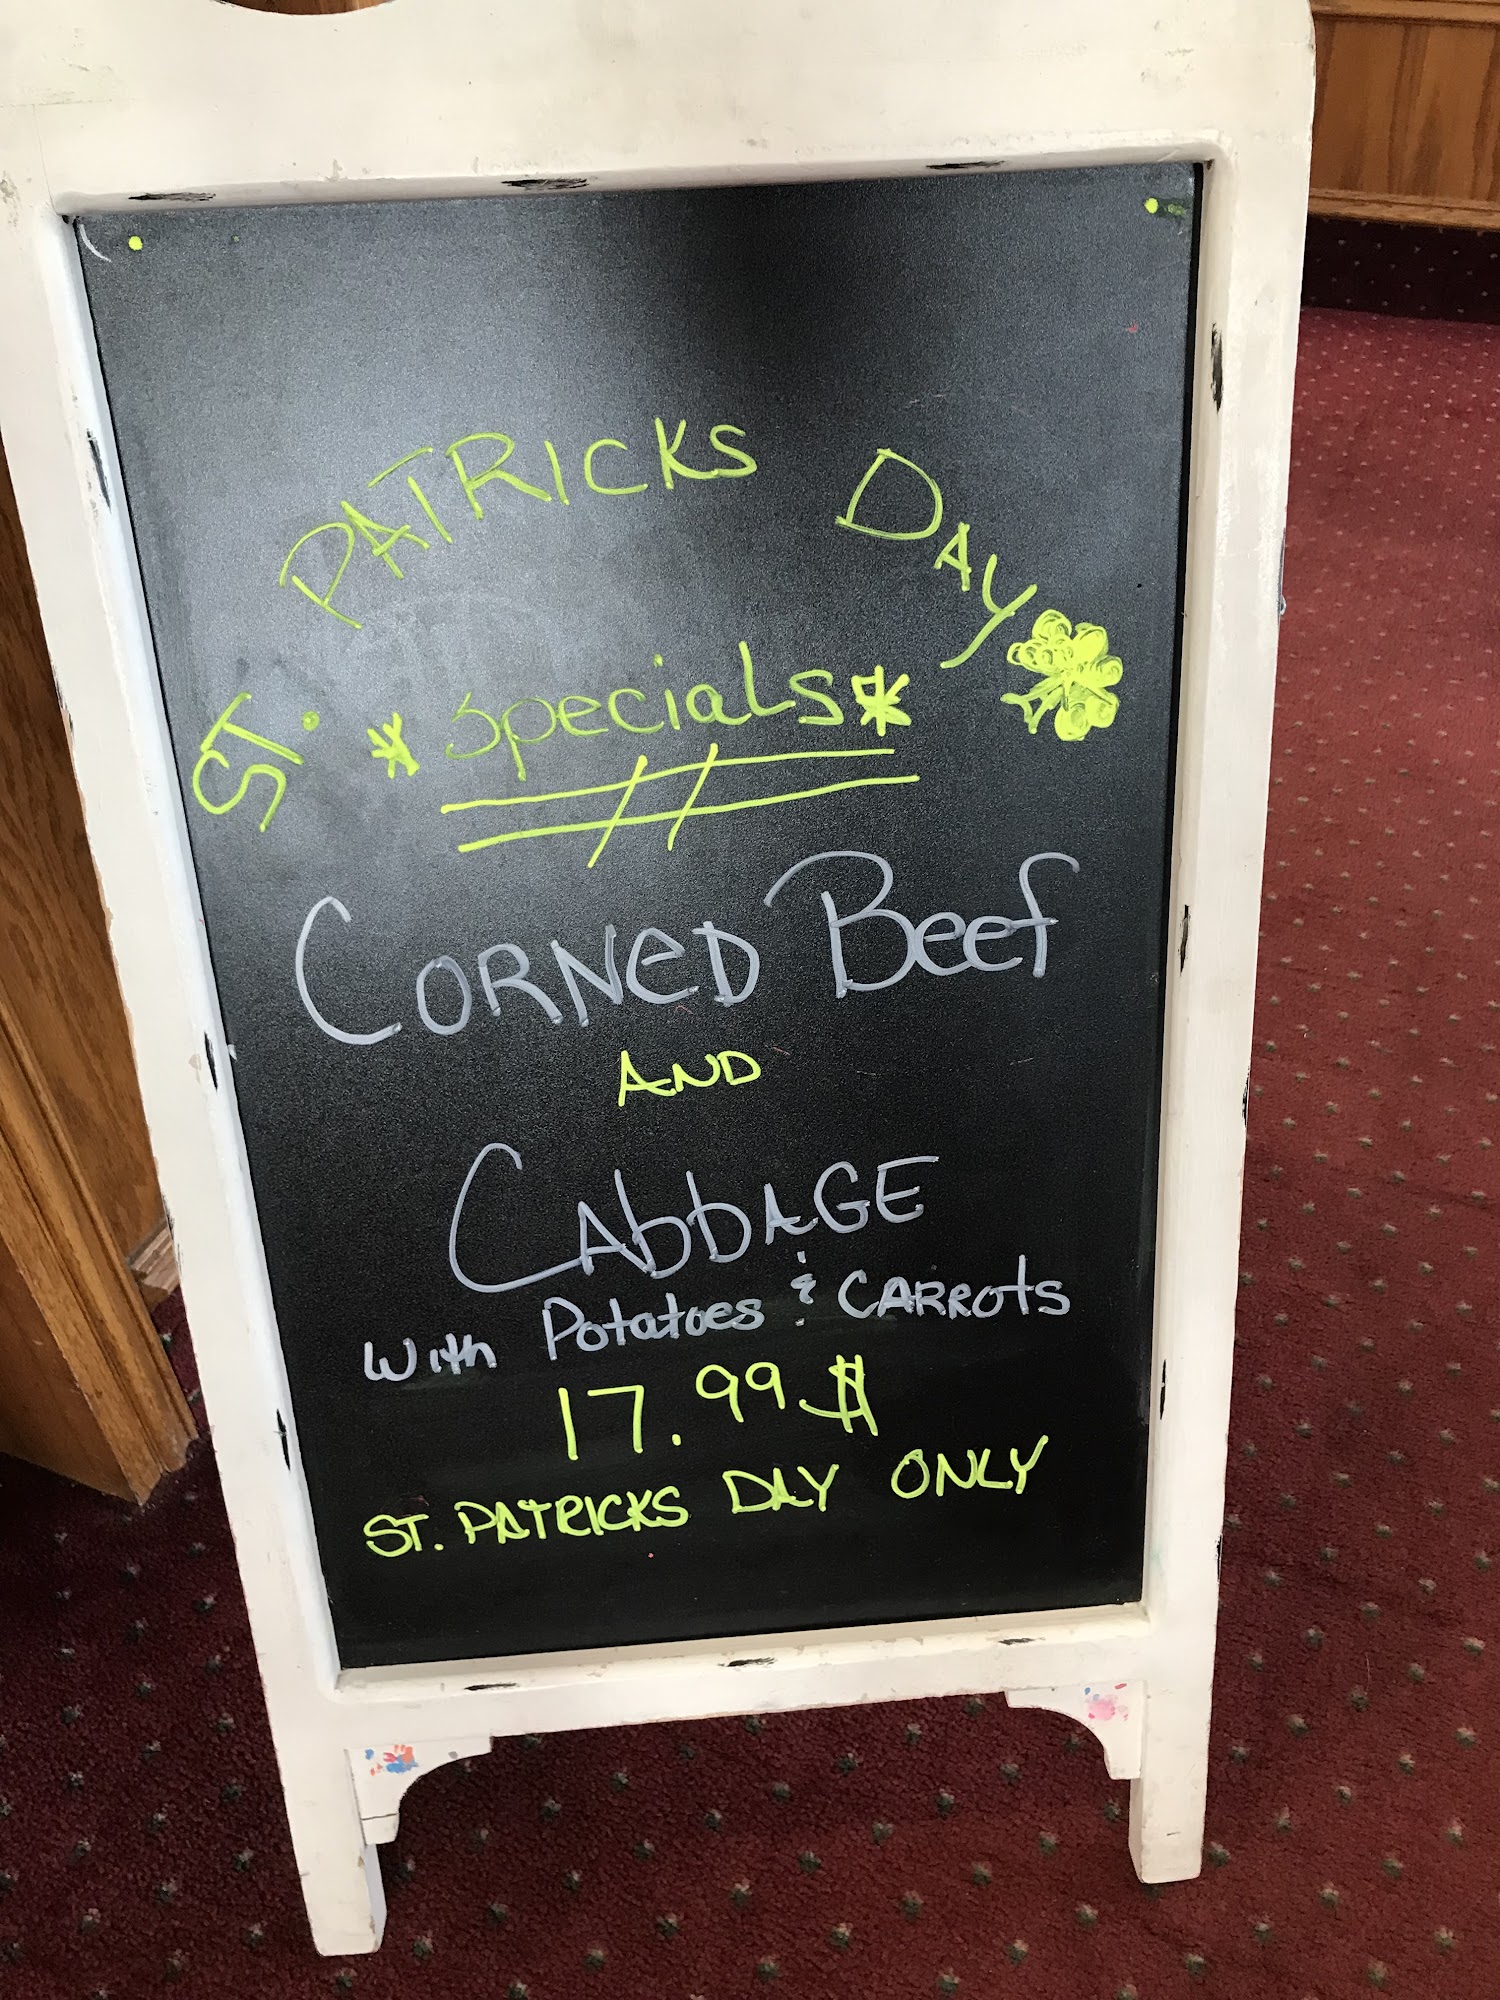 ST. PATRICKS DAY
* Specials *
CORNED Beef
AND
CABBAGE
With Potatoes & CARROTS
17.99 $
ST. PATRICKS DAY ONLY